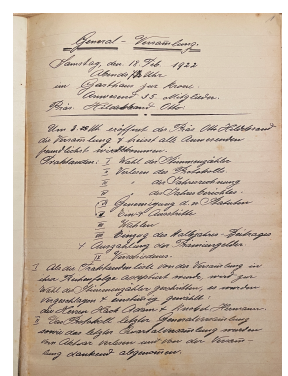 General - Versammlung.
Samstag, den 18. Feb. 1922
Abends Uhr
im Gasthaus zur Krone
Anwesend 35 Mitglieder.
Präs. Hildebrand Otto.
Um Uhr eröffnet der Präs. Otto Hildebrand
die Versammlung & heisst alle Anwesenden
freundlichst willkommen.
Traktanden: I Wahl der Stimmenzähler
II Verlesen des Protokolls
III " der Jahresrechnung
IV " des Jahresberichtes
V Genehmigung d. n. Statuten
VI Ein & Austritte
VII Wahlen
VIII Einzug des Halbjahres-Beitrages
& Auszahlung der Prämiengelder
IX Verschiedenes.
I Als die Traktandenliste von der Versammlung in
ihrer Reihenfolge wurde, wird zur
Wahl der Stimmenzähler geschritten, es wurden
vorgeschlagen & einstimmig gewählt:
die Herren & Hermann.
II Das Protokoll letzter Generalversammlung
sowie das letzter Quartalversammlung wurden
vom Aktuar verlesen und von der Versamm-
lung dankend abgenommen.